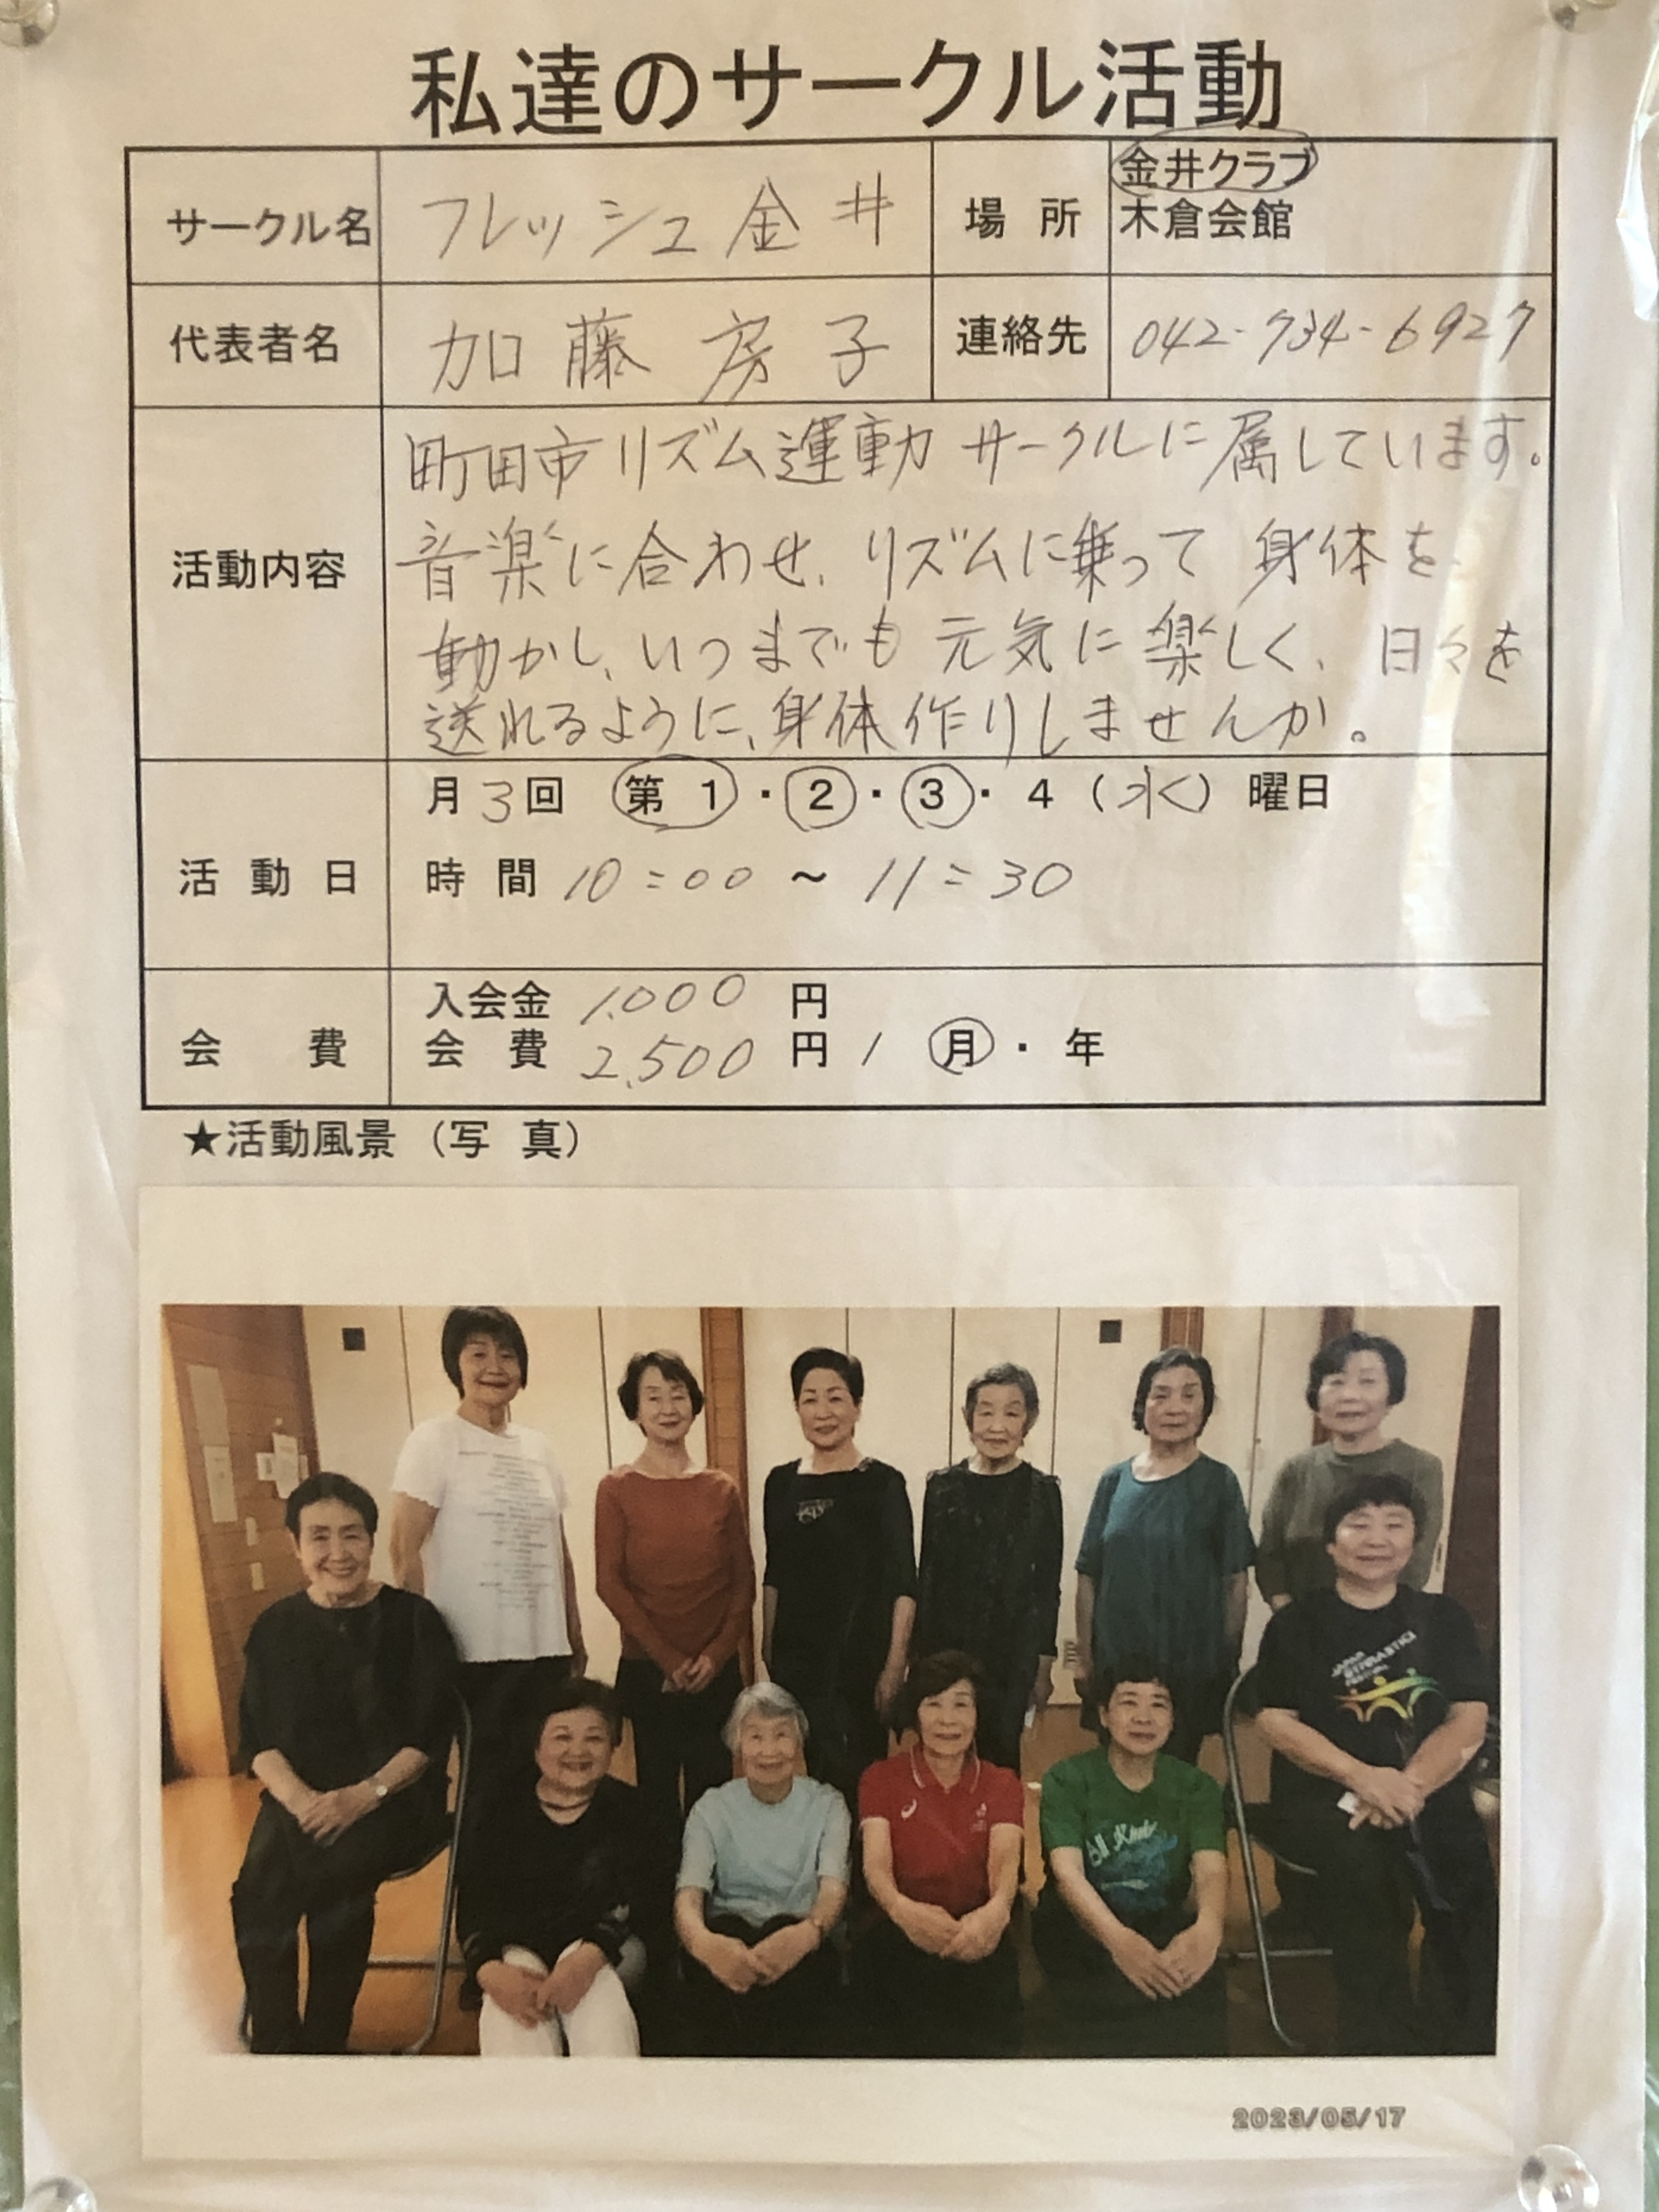 私達のサークル活動
サークル名 フレッシュ金井 場所 金井クラブ
木倉会館
代表者名 加藤房子 連絡先 042-734-6927
活動内容 町田市リズム運動サークルに属しています。
音楽に合わせ、リズムに乗って身体を
動かし、いつまでも元気に楽しく、日々を
送れるように、身体作りしませんか。
活動日 月3回 第1・2・3・4(水)曜日
時間 10:00～11:30
会費 入会金 1,000 円
会費 2,500 円 / 月・年
★活動風景(写真)
JAPAN
GYMNASTICS
2023/05/17